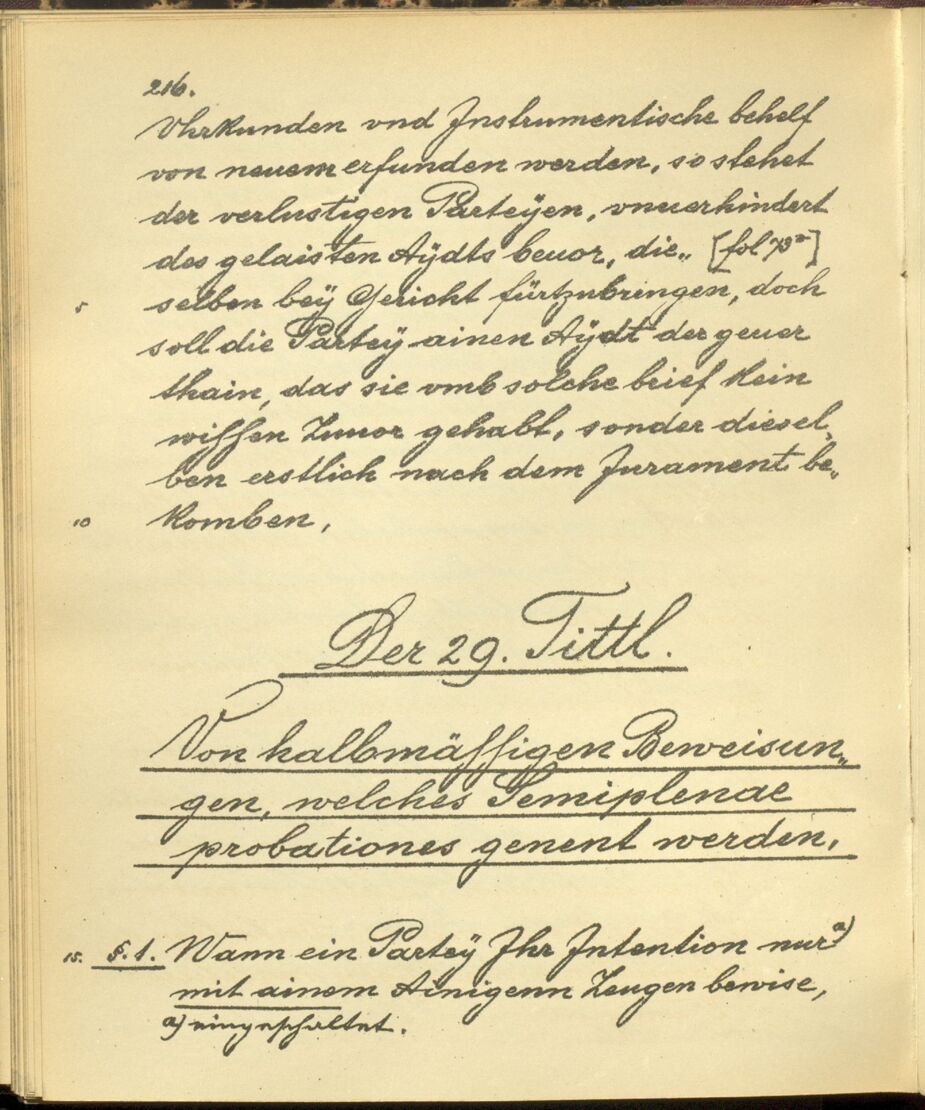 216.
Vhrkunden vnd Instrumentische behelf
von neuem erfunden werden, so stehet
der verlustigen Parteÿen, vneuerhindert
des gelaisten Aÿdts beuor, die„ [fol 73ʳ]
5 selben beÿ Gericht fürtzubringen, doch
soll die Parteÿ ainen Aÿdt der geuer
thain, das sie vmb solche brief kein
wissen Zuuor gehabt, sonder diesel„
ben erstlich nach dem Jurament be„
10 komben,
Der 29. Tittl.
Von halbmässigen Beweisun„
gen, welches Semiplenae
probationes genent werden,
15. §. 1. Wann ein Parteÿ Ihr Intention nur a)
mit ainem Ainigenn Zeugen bewise,
a) eingeschaltet.